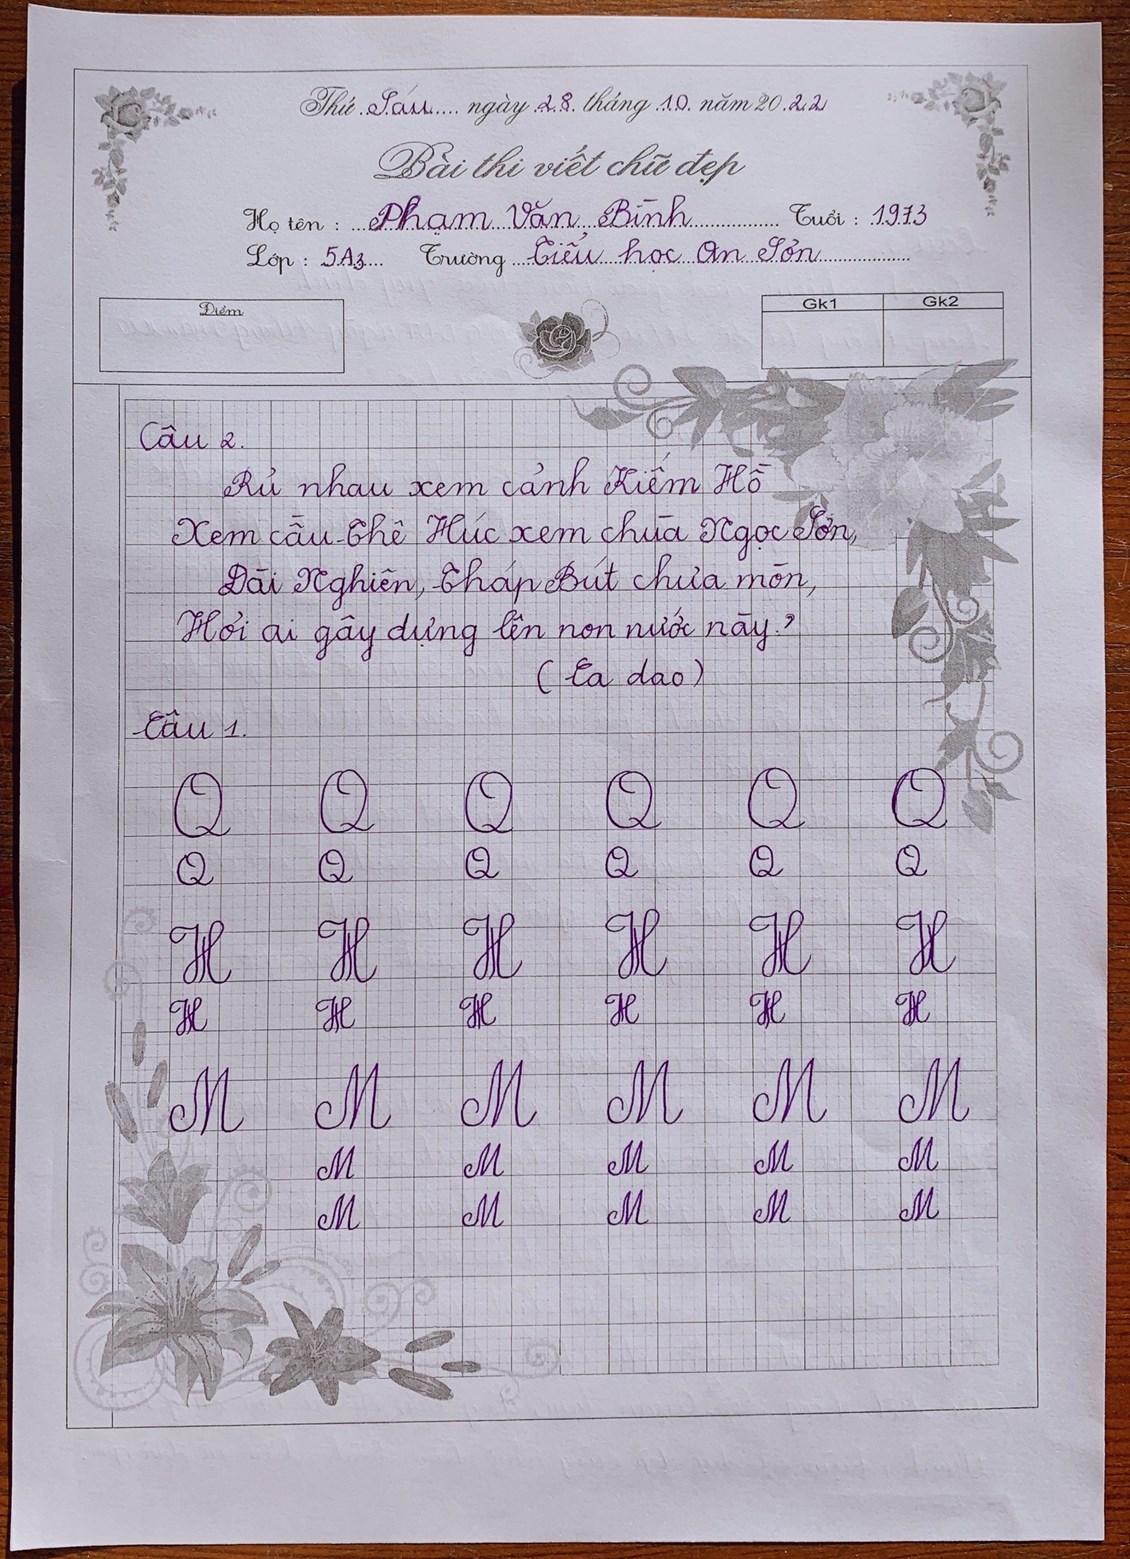 Thứ Sáu ngày 28 tháng 10 năm 2022
Bài thi viết chữ đẹp
Họ tên : Phạm Văn Bình Tuổi : 1973
Lớp : 5A3 Trường Tiểu học An Sơn
Điểm
Gk1 Gk2
Câu 2.
Rủ nhau xem cảnh Kiếm Hồ
Xem cầu Thê Húc xem chùa Ngọc Sơn,
Đài Nghiên, Tháp Bút chưa mòn,
Hỏi ai gây dựng lên non nước này?
(Ca dao)
Câu 1.
Q Q Q Q Q Q
Q Q Q Q Q Q
H H H H H H
H H H H H H
M M M M M M
M M M M M
M M M M M